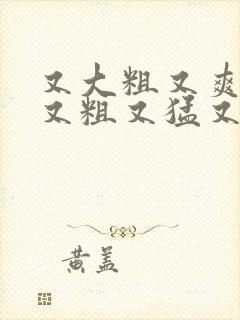 又大粗又爽
又粗又猛又
黄盖